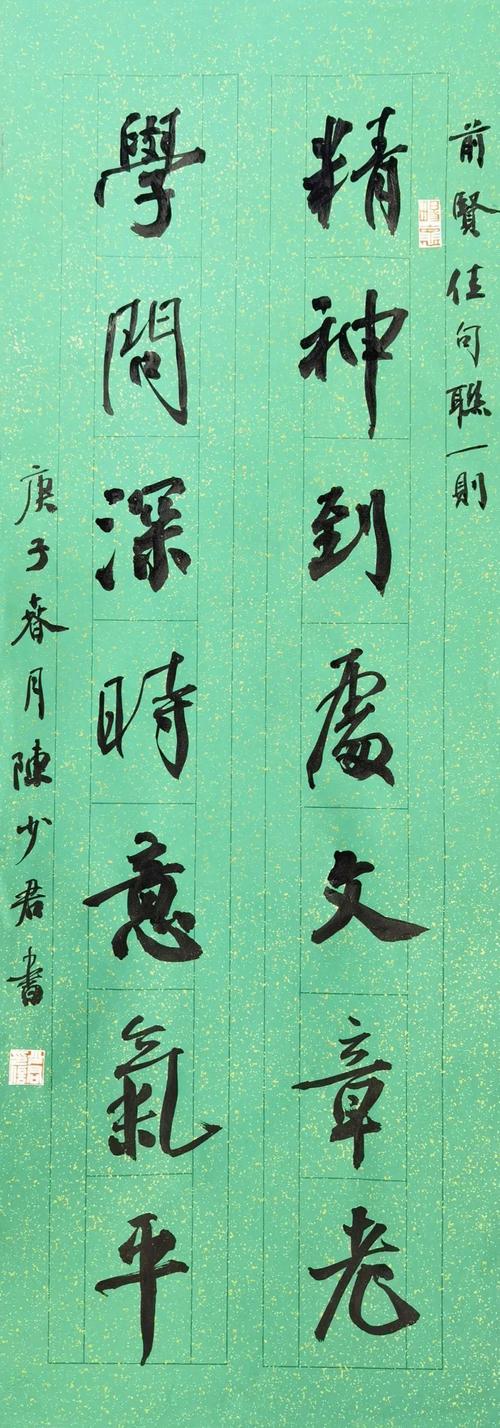 前賢佳句聯一則
精神到處文章老
學問深時意氣平
庚子春月陳少君書